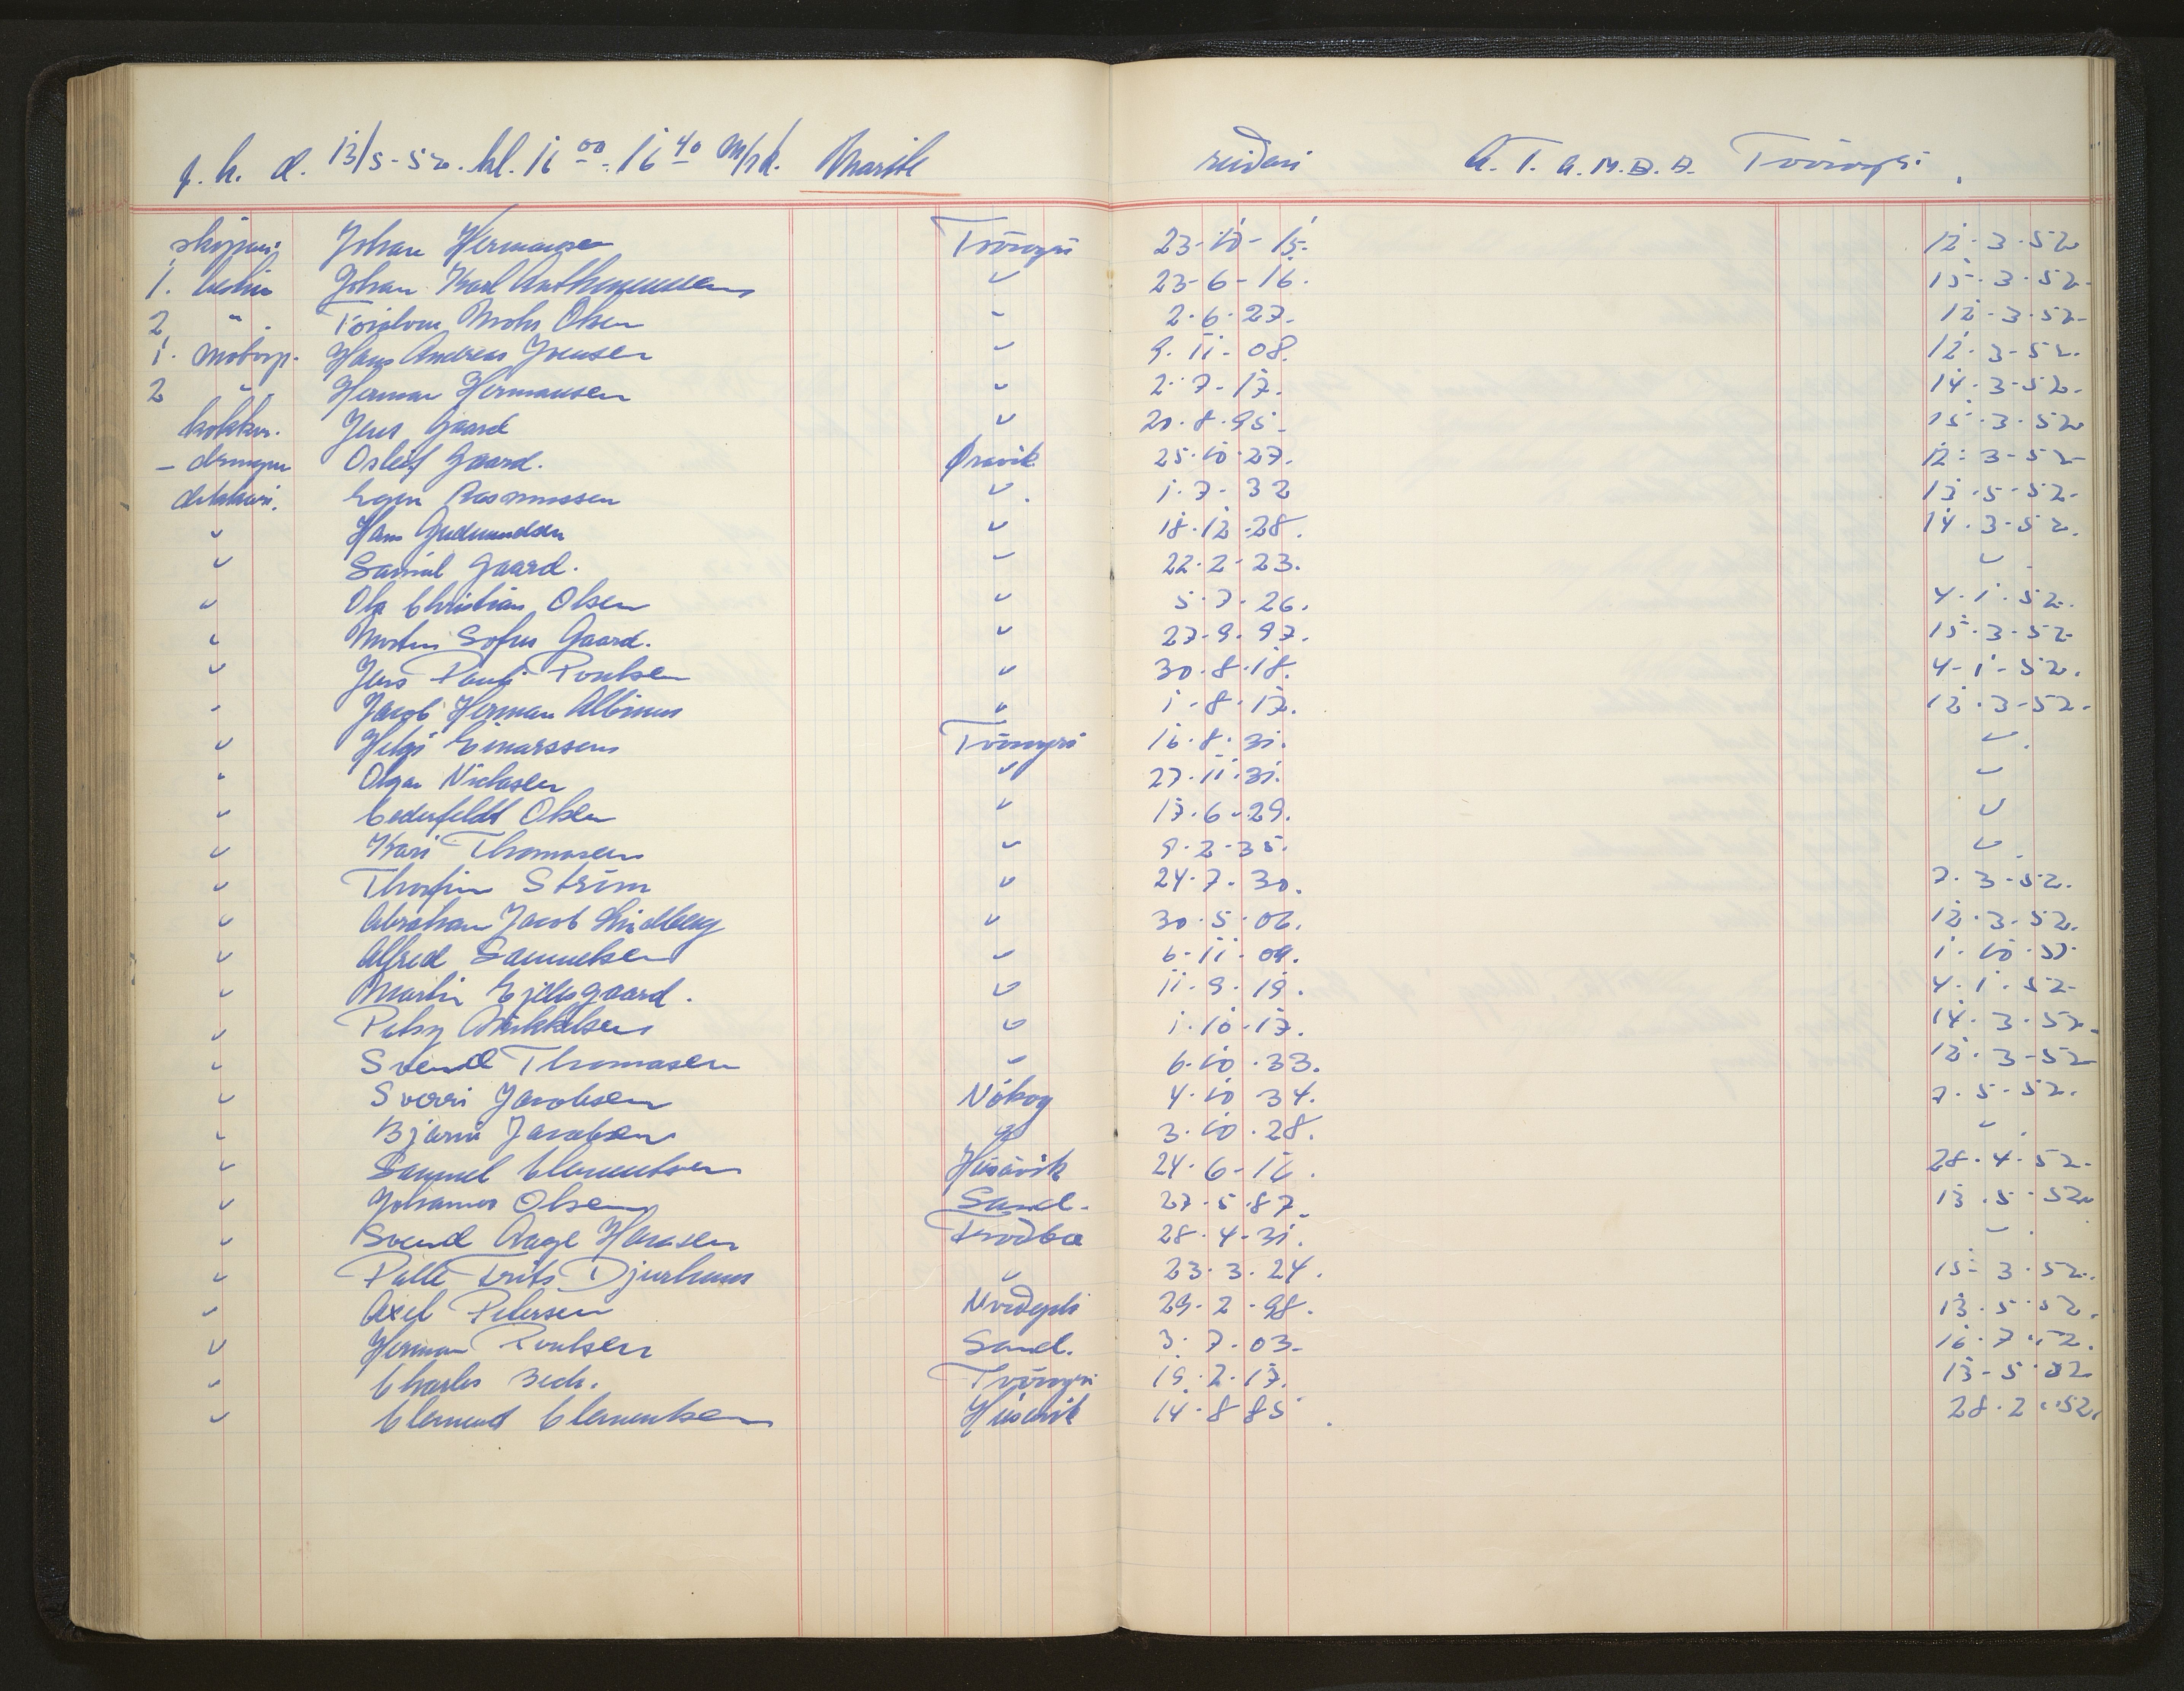 q. h. d. 13/5-52. kl. 16 00 - 16 40 M/sk. reiðari A. T. A. M. B. B. Tvöroyri.
skipari Johan Hermansen Tvöroyri 23-10-15. 12.3.52
1. Johan Karl ᴗ 23-6-16. 15.3.52.
2 " Olsen - 2.6.27. 12.3.52-
1. motorp. Hans Andreas Joensen ᴗ 9.11.08. 12.3-52.
2 " Herman Hermansen ᴗ 2.7.17. 14.3-52.
kokkur. Jens Gaard ᴗ 20.8.95. 15.3.52
- drongur Osleif Gaard. Øravik 25.10.27. 12.3-52-
dekkari. Rasmussen ᴗ. 1.7-32 13.5.52.
ᴗ Hans ᴗ 18.12.28. 14.3.52.
ᴗ Samal Gaard. - 22.2.23. ᴗ.
ᴗ Ole Christian Olsen ᴗ 5.7.26. 4.1.52.
ᴗ Sofus Gaard. ᴗ 27.9.97. 15.3.52
ᴗ Jens Pauli Poulsen ᴗ 30.8.18. 4-1-52.
- Jacob Herman Albinus ᴗ 1-8.17. 12.3-52.
ᴗ Helgi Einarssen Tvöroyri 16.8.31. ᴗ.
" Olgar Niclasen ᴗ 27.11.31. ᴗ
ᴗ Cederfeldt Olsen ᴗ 17.6.29. ᴗ
ᴗ Kari Thomasen ᴗ 9.2.35. ᴗ.
ᴗ Thorfin Ström ᴗ 24.7.30. 7.3-52.
ᴗ Abraham Jacob Lindberg ᴗ 30.5.06. 12.3-52.
ᴗ Alfred Samuelsen ᴗ 6-11.09. 1.10.
ᴗ Martin Ejdesgaard. ᴗ 11.9.19. 4.1.52
ᴗ Mikkelsen ᴗ 1.10.17. 14.3.52.
ᴗ Svend Thomasen ᴗ 6.10.33. 12.3-52
ᴗ Sverri Jacobsen 4.10.34. 7.5.52.
ᴗ Bjarni Jacobsen 3.10.28. ᴗ.
ᴗ Samuel Clementsen Húsavik 24.6-16. 28.4.52.
ᴗ Johannes Olsen Sand. 27.5.87. 13.5.52
ᴗ Svend Aage Hansen Froðba 28.4-31. ᴗ.
ᴗ Palli Frits Djurhuus ᴗ 23.3.24. 15.3.52.
ᴗ Axel Petersen 29.2.98. 13.5.52.
ᴗ Herman Poulsen Sand. 3.7.03. 16.7.52.
ᴗ Charles Bech. Tvöroyri 19.2.17. 13-5.52
ᴗ Clement Clementsen Húsavik 14.8.85. 28.2.52.